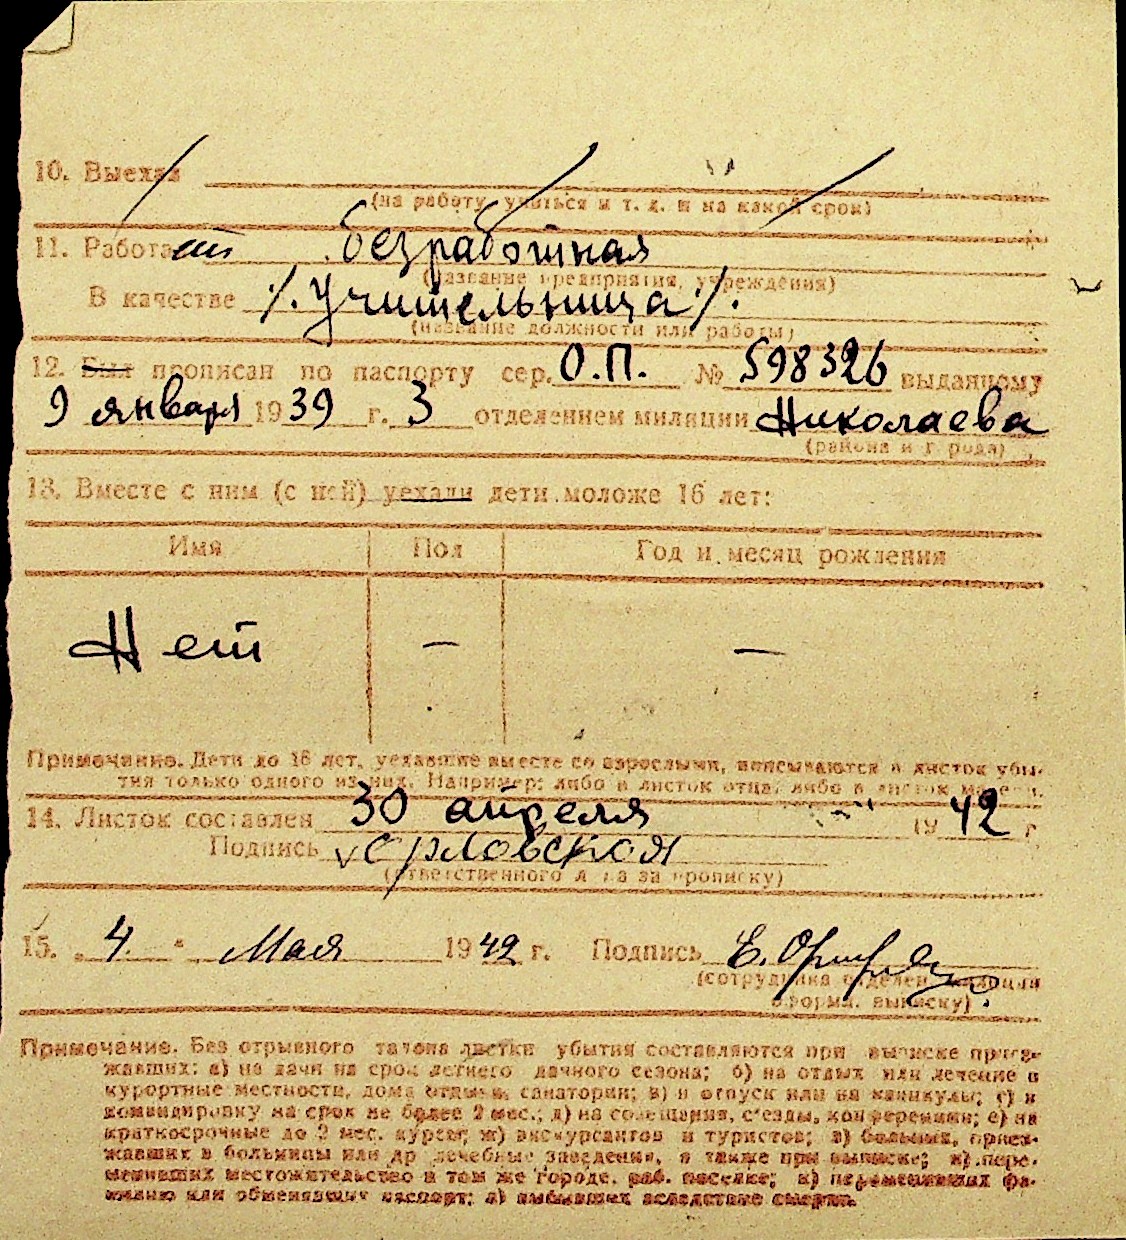 10. Выехал
(на работу, учиться и т. д. и на какой срок)
11. Работает безработная
(название предприятия, учреждения)
В качестве /. учительница /.
(название должности или работы)
12. Был прописан по паспорту сер. О.П. № 598326 выданному
9 января 1939 г. 3 отделением милиции Николаева
(района и города)
13. Вместе с ним (с ней) уехали дети моложе 16 лет:
Имя Пол Год и месяц рождения
Нет — —
Примечание. Дети до 16 лет, уехавшие вместе со взрослыми, вписываются в листок убы-
тия только одного из них. Например: либо в листок отца, либо в листок матери.
14. Листок составлен 30 апреля 1942 г.
Подпись
(ответственного лица за прописку)
15. „ 4 " Мая 1942 г. Подпись Е.
(сотрудника отделен. милиции
оформ. выписку)
Примечание. Без отрывного талона листки убытия составляются при выписке приез-
жавших: а) на дачи на срок летнего дачного сезона; б) на отдых или лечение в
курортные местности, дома отдыха, санатории; в) в отпуск или на каникулы; г) в
командировку на срок не более 2 мес.; д) на совещания, съезды, конференции; е) на
краткосрочные до 2 мес. курсы; ж) экскурсантов и туристов; з) больных, приез-
жавших в больницы или др лечебные заведения, а также при выписке; и) пере-
менивших местожительство в том же городе, раб. поселке; к) переменивших фа-
милию или обменявших паспорт; л) выбывших вследствие смерти.